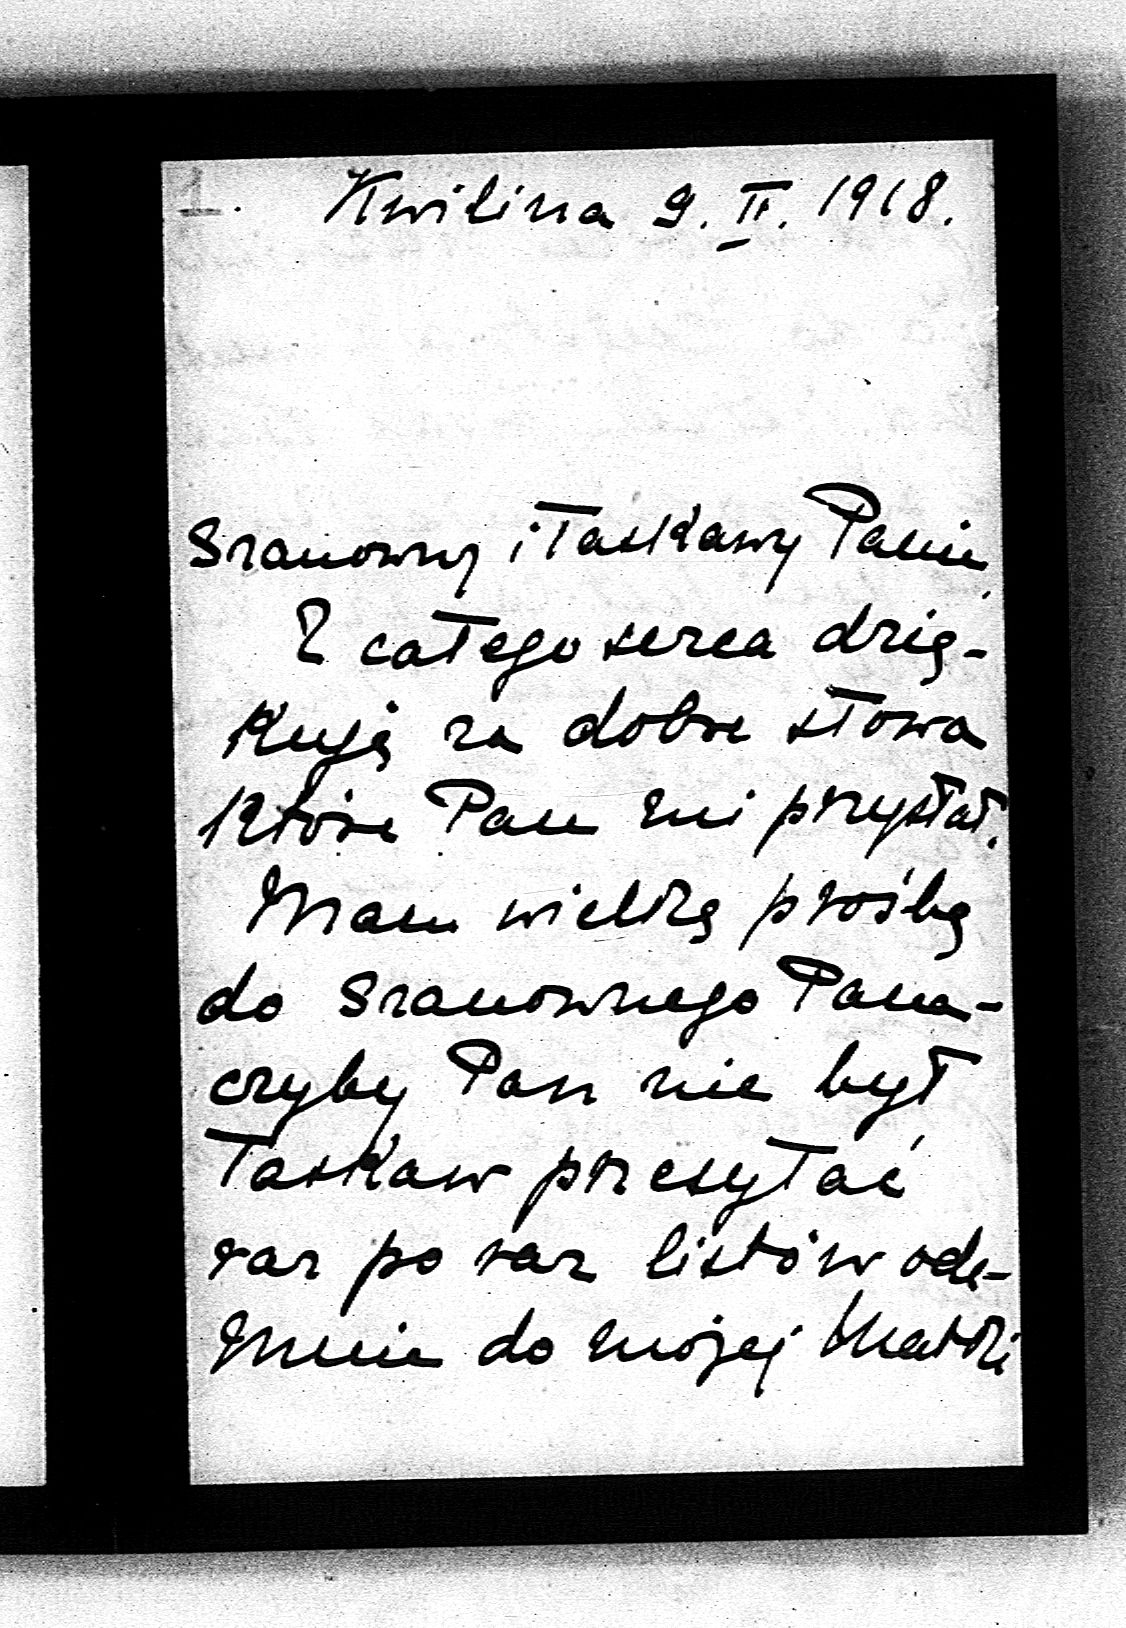 1. Kwilina 9. II. 1918.
Szanowny i Łaskawy Panie,
Z całego serca dzię-
kuję za dobre słowa
które Pan mi przysłał.
Mam wielką prośbę
do Szanownego Pana-
czyby Pan nie był
łaskaw przesyłać
raz po raz listów ode-
mnie do mojej Matki